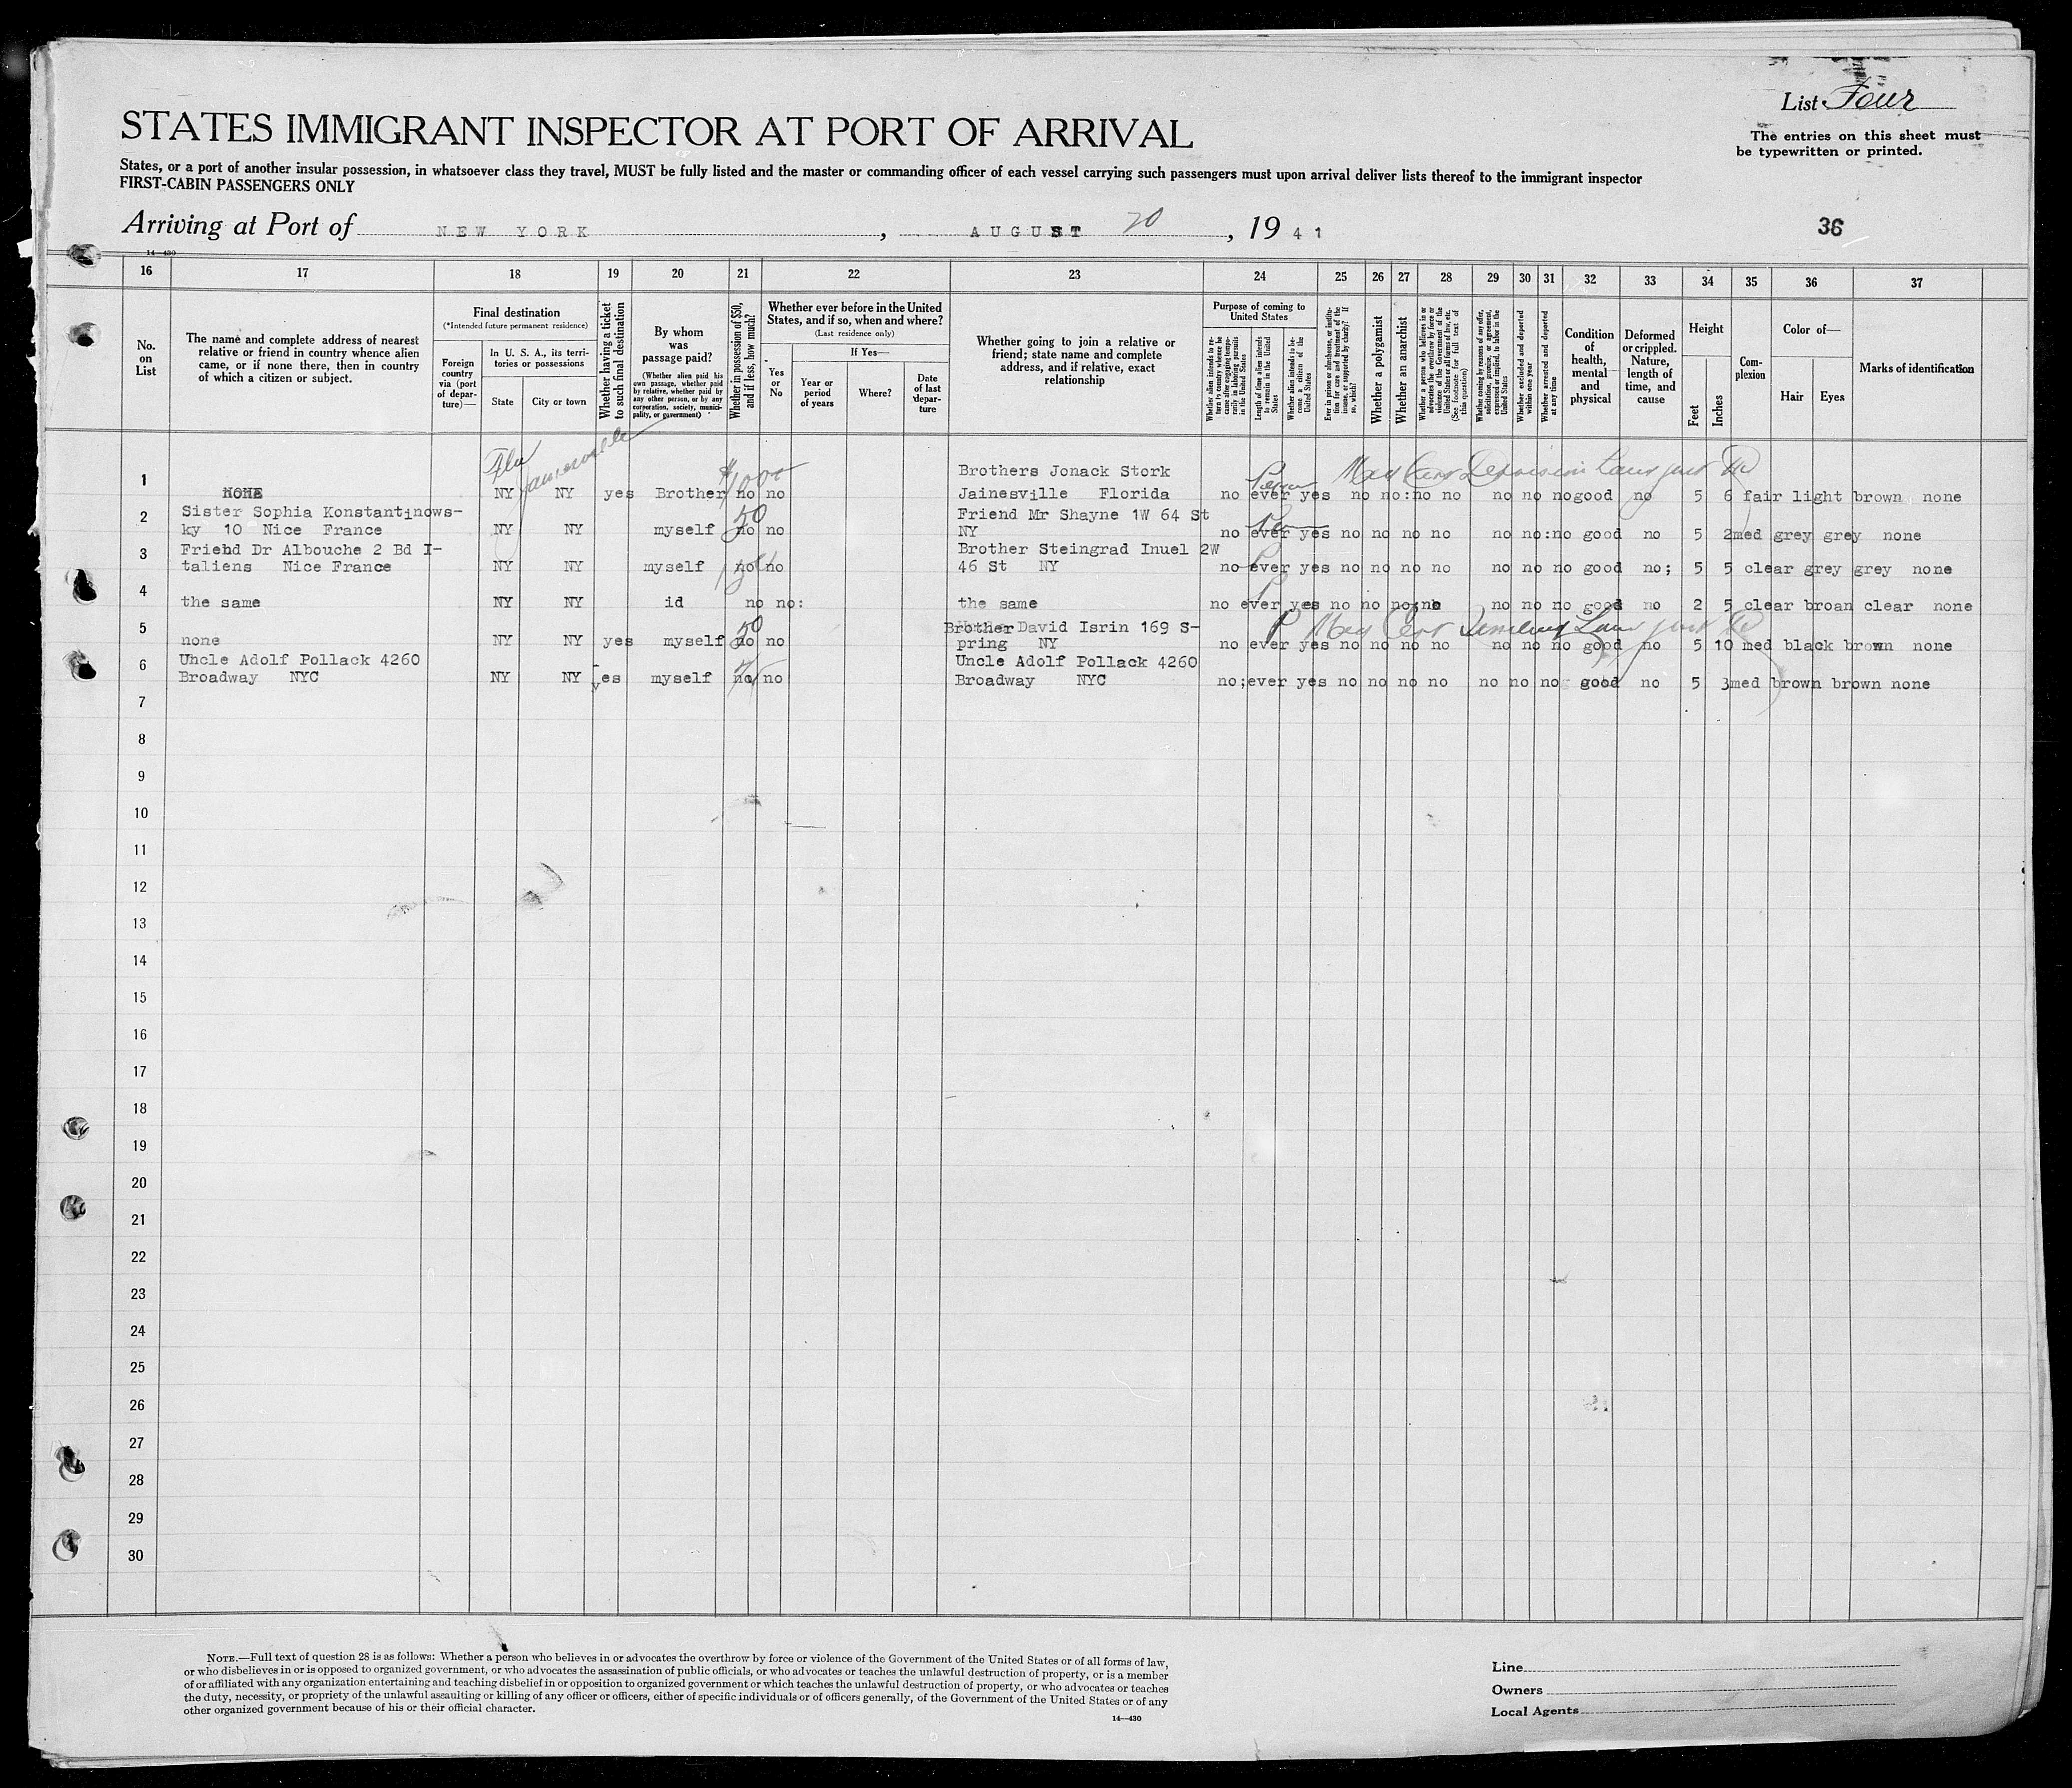 List Four
STATES IMMIGRANT INSPECTOR AT PORT OF ARRIVAL
The entries on this sheet must
be typewritten or printed.
States, or a port of another insular possession, in whatsoever class they travel, MUST be fully listed and the master or commanding officer of each vessel carrying such passengers must upon arrival deliver lists thereof to the immigrant inspector
FIRST-CABIN PASSENGERS ONLY
Arriving at Port of NEW YORK, AUGUST 20, 1941
36
14-430
16 17 18 19 20 21 22 23 24 25 26 27 28 29 30 31 32 33 34 35 36 37
No. on List
The name and complete address of nearest
relative or friend in country whence alien
came, or if none there, then in country
of which a citizen or subject.
Final destination
(*Intended future permanent residence)
Foreign country via (port of departure)—
In U. S. A., its territories or possessions
State
City or town
Whether having a ticket to such final destination
By whom was passage paid?
(Whether alien paid his own passage, whether paid by relative, whether paid by any other person, or by any corporation, society, municipality, or government)
Whether in possession of $50, and if less, how much?
Whether ever before in the United States, and if so, when and where?
(Last residence only)
Yes or No
If Yes—
Year or period of years
Where?
Date of last departure
Whether going to join a relative or
friend; state name and complete
address, and if relative, exact
relationship
Purpose of coming to United States
Whether alien intends to return to country whence he came after engaging temporarily in laboring pursuits in the United States
Length of time alien intends to remain in the United States
Whether alien intends to become a citizen of the United States
Ever in prison or almshouse, or institution for care and treatment of the insane, or supported by charity? If so, which?
Whether a polygamist
Whether an anarchist
Whether a person who believes in or advocates the overthrow by force or violence of the Government of the United States or of all forms of law, etc. (See footnote for full text of this question)
Whether coming by reasons of any offer, solicitation, promise, or agreement, expressed or implied, to labor in the United States
Whether excluded and deported within one year
Whether arrested and deported at any time
Condition of health, mental and physical
Deformed or crippled. Nature, length of time, and cause
Height
Feet
Inches
Complexion
Color of—
Hair
Eyes
Marks of identification
Fla
$1000
1 Brothers Jonack Stork
NONE NY NY yes Brother no no Jainesville Florida no ever yes no no:no no no no no good no 5 6 fair light brown none
2 Sister Sophia Konstantinows- 50 Friend Mr Shayne 1W 64 St
ky 10 Nice France NY NY myself no no NY no ever yes no no no no no no:no good no 5 2 med grey grey none
3 Friend Dr Albouche 2 Bd I- Brother Steingrad Inuel 2W
taliens Nice France NY NY myself no no 46 St NY no ever yes no no no no no no no good no; 5 5 clear grey grey none
4 the same NY NY id no no: the same no ever yes no no no;no no no no good no 2 5 clear broan clear none
5 50 Brother David Isrin 169 S- P
none NY NY yes myself no no pring NY no ever yes no no no no no no no good no 5 10 med black brown none
6 Uncle Adolf Pollack 4260 Uncle Adolf Pollack 4260
Broadway NYC NY NY yes myself no no Broadway NYC no;ever yes no no no no no no no good no 5 3 med brown brown none
7
8
9
10
11
12
13
14
15
16
17
18
19
20
21
22
23
24
25
26
27
28
29
30
NOTE.—Full text of question 28 is as follows: Whether a person who believes in or advocates the overthrow by force or violence of the Government of the United States or of all forms of law,
or who disbelieves in or is opposed to organized government, or who advocates the assassination of public officials, or who advocates or teaches the unlawful destruction of property, or is a member
of or affiliated with any organization entertaining and teaching disbelief in or opposition to organized government or which teaches the unlawful destruction of property, or who advocates or teaches
the duty, necessity, or propriety of the unlawful assaulting or killing of any officer or officers, either of specific individuals or of officers generally, of the Government of the United States or of any
other organized government because of his or their official character.
14—430
Line
Owners
Local Agents